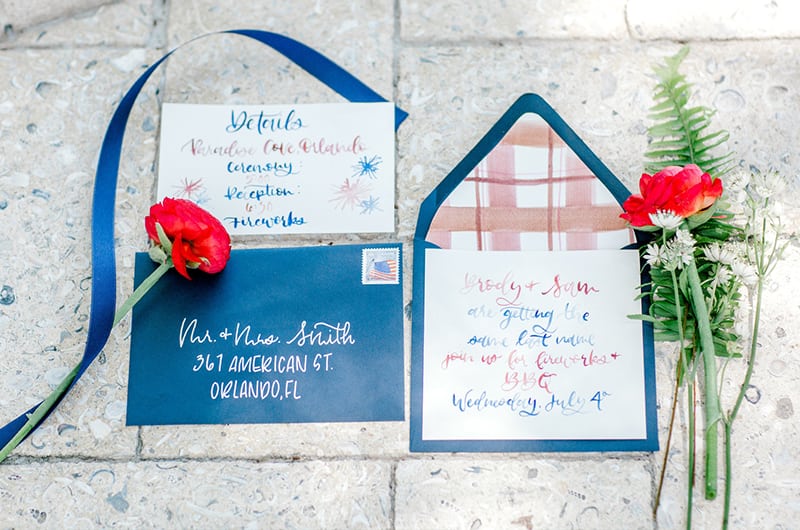 Details
Paradise Cove, Orlando
Ceremony:
Reception:
6:30
Fireworks
Mr. + Mrs. Smith
367 AMERICAN ST.
ORLANDO, FL
Brody + Sam
are getting the
same last name
join us for fireworks +
BBQ
Wednesday, July 4th